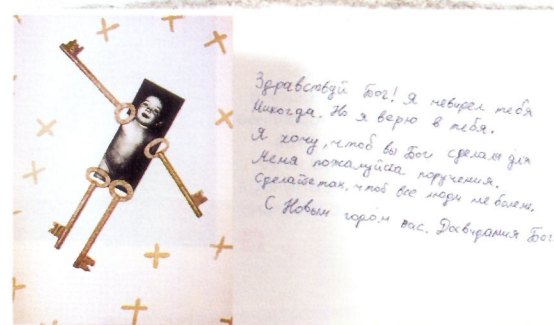 Здравствуй Бог! Я невидел тебя
Никогда. Но я верю в тебя.
Я хочу, чтоб вы Бог сделали для
Меня пожалуйста поручения.
Сделайте так, чтоб все люди не болели.
С Новым годом вас. Досвидания Бог